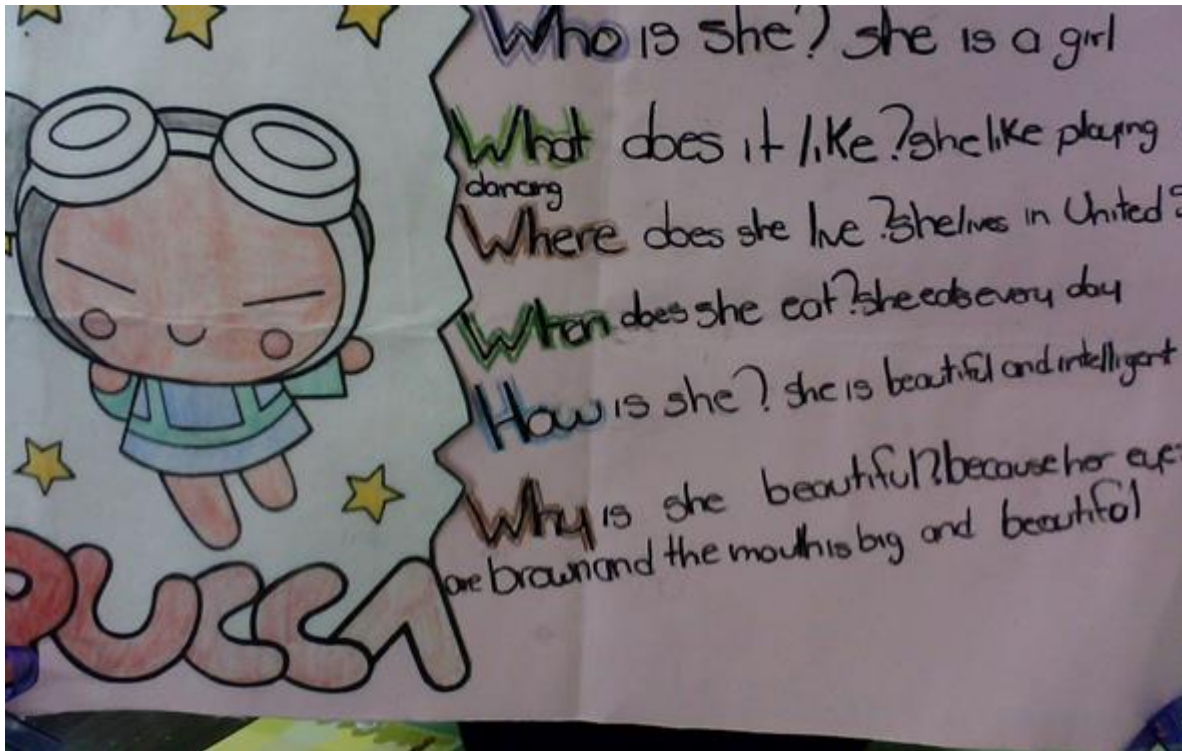 Who is she? she is a girl
What does it like? she like playing
dancing
Where does she live? she lives in United
When does she eat? she eats every day
How is she? she is beautiful and intelligent
Why is she beautiful? because her eye
are brown and the mouth is big and beautiful
PUCCA